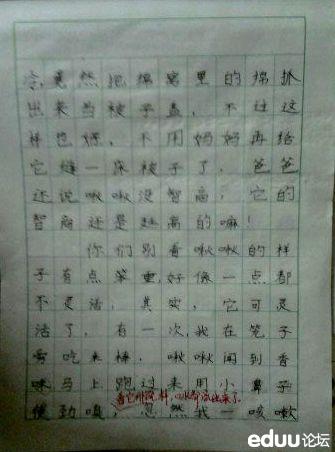 冷，竟然把棉窝里的棉抓
出来当被子盖，不过这
样也好，不用妈妈再给
它缝一床被子了。爸爸
还说啾啾没智商，它的
智商还是挺高的嘛！
你们别看啾啾的样
子有点笨重，好像一点都
不灵活，其实，它可灵
活了，有一次，我在笼子
旁吃米棒，啾啾闻到香
味马上跑过来用小鼻子
看它那馋样，口水都流出来了。
使劲嗅，忽然我一咳嗽
eduu论坛